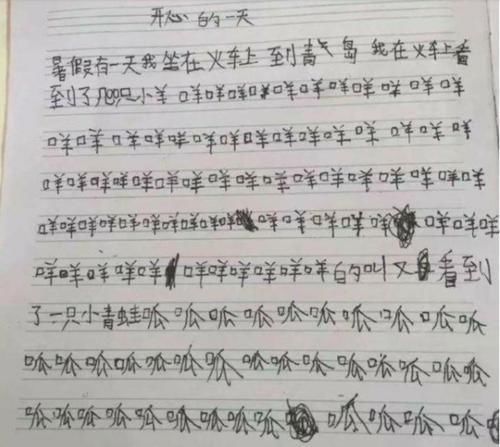 开心的一天
暑假有一天我坐在火车上到青气岛我在火车上看
到了几只小羊咩咩咩咩咩咩咩咩咩咩咩
咩咩咩咩咩咩咩咩咩咩咩咩咩咩咩
咩咩咩咩咩咩咩咩咩咩咩咩咩咩咩咩咩咩
咩咩咩咩咩咩咩咩咩咩咩咩咩咩咩咩咩
咩咩咩咩咩咩咩咩咩咩咩的叫又看到
了一只小青蛙呱呱呱呱呱呱呱呱呱呱
呱呱呱呱呱呱呱呱呱呱呱呱呱呱呱
呱呱呱呱呱呱呱呱呱呱呱呱呱